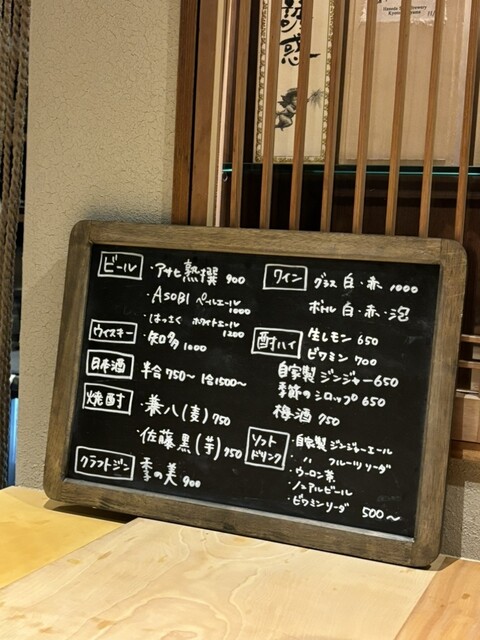 ビール
・アサヒ 熟撰 900
・ASOBI ペールエール 1000
・はっさく ホワイトエール 1200
ウイスキー
・知多 1000
日本酒
半合 750〜 1合 1500〜
焼酎
・兼八(麦) 750
・佐藤黒(芋) 750
クラフトジン
季の美 900
ワイン
グラス 白・赤 1000
ボトル 白・赤・泡
酎ハイ
生レモン 650
ビワミン 700
自家製 ジンジャー 650
季節の シロップ 650
梅酒 750
ソフトドリンク
・自家製 ジンジャーエール
・ 〃 フルーツソーダ
・ウーロン茶
・ノンアルビール
・ビワミンソーダ 500〜
惑